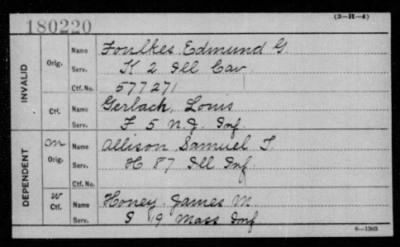 180220
(3-H-4)
INVALID
Orig.
Name Foulkes Edmund G.
Serv. K 2 Ill Cav
Ctf. No. 577271
Ctf.
Name Gerlach, Louis
Serv. F 5 N.J. Inf
DEPENDENT
m
Orig.
Name Allison Samuel T.
Serv. H 87 Ill Inf.
Ctf. No.
W
Ctf.
Name Honey James M.
Serv. G 19 Mass Inf